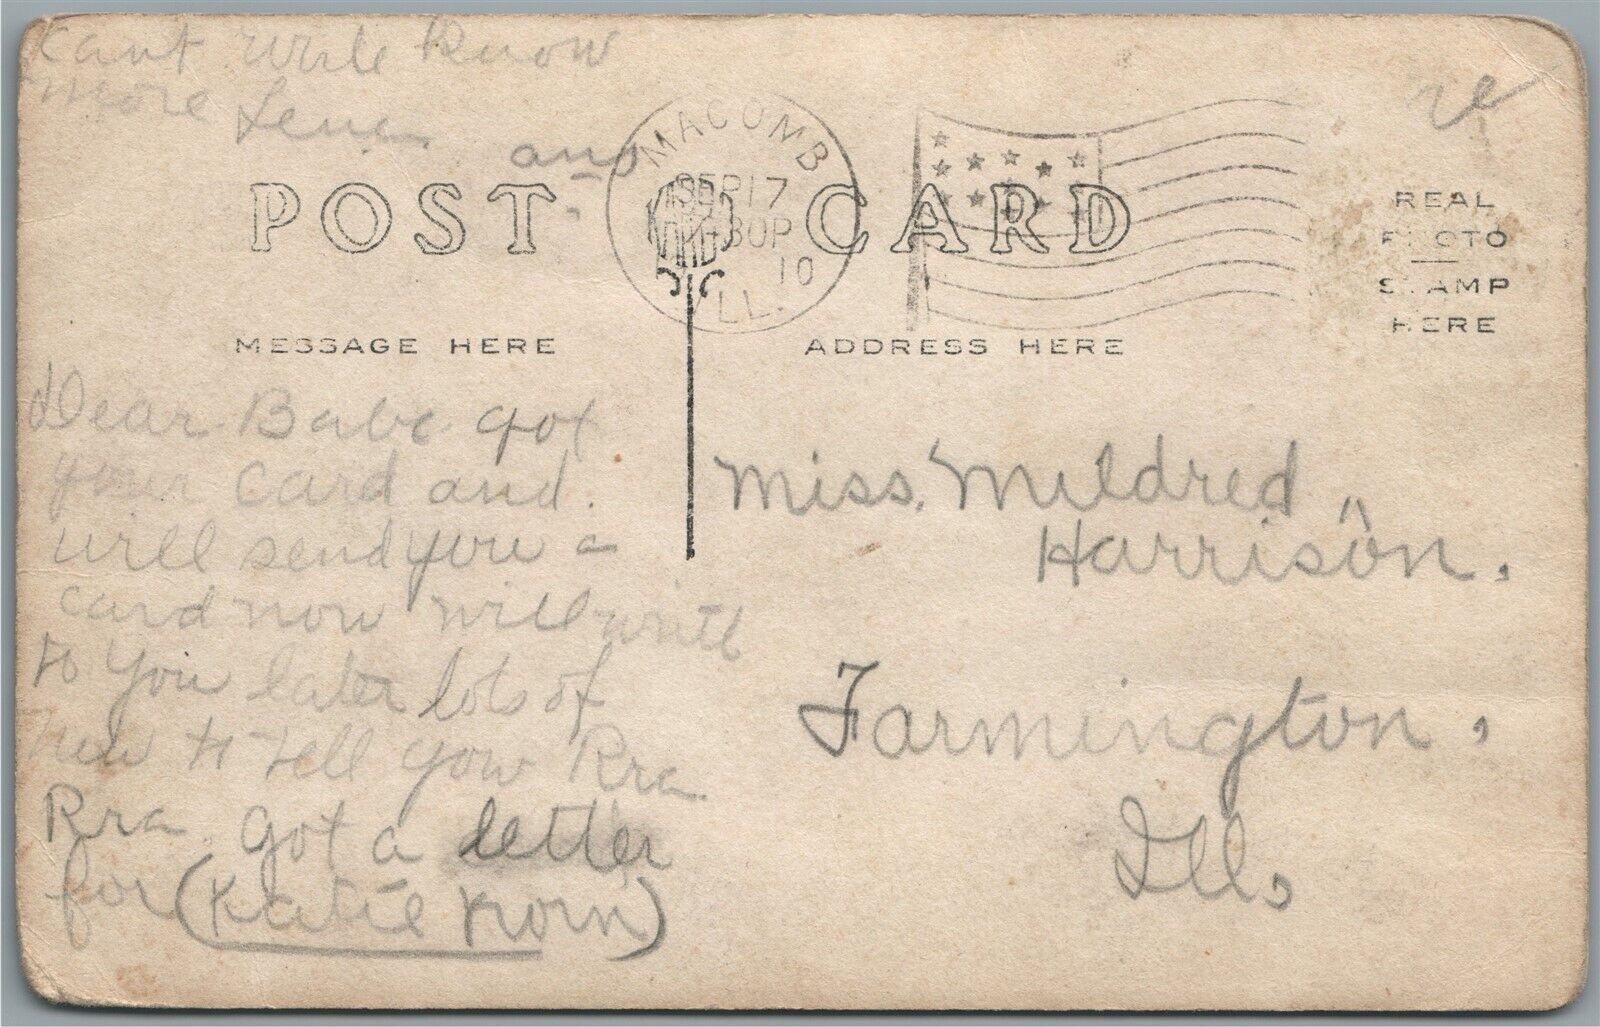 cant write know
more Lena
and
MACOMB
SEP 17
30P
10
ILL.
POST CARD
REAL
PHOTO
STAMP
HERE
MESSAGE HERE
ADDRESS HERE
Dear Babe got
your card and.
will send you a
card now will write
to you later lots of
new to tell you Rra
Rra. got a letter
for (Katie Korn)
Miss. Mildred
Harrison.
Farmington,
Ill,